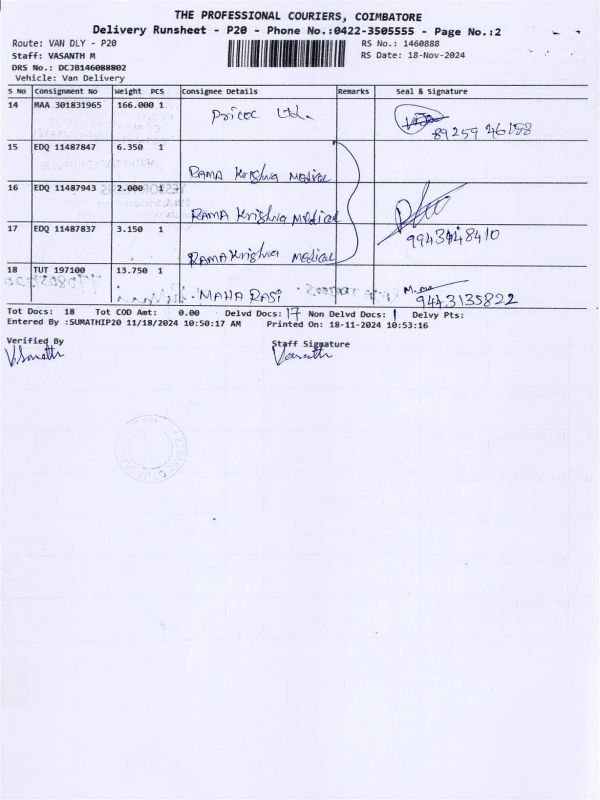 THE PROFESSIONAL COURIERS, COIMBATORE
Delivery Runsheet - P20 - Phone No.:0422-3505555 - Page No.:2
Route: VAN DLY - P20 RS No.: 1460888
Staff: VASANTH M RS Date: 18-Nov-2024
DRS No.: DCJB146088802
Vehicle: Van Delivery
S No Consignment No Weight PCS Consignee Details Remarks Seal & Signature
14 MAA 301831965 166.000 1 Pricoc Ltd.
89259 46188
15 EDQ 11487847 6.350 1
Rama Krishna Medical
16 EDQ 11487943 2.000 1
Rama Krishna Medical
17 EDQ 11487837 3.150 1
9943448410
Rama Krishna Medical
18 TUT 197100 13.750 1
MAHA RASI 9443135822
Tot Docs: 18 Tot COD Amt: 0.00 Delvd Docs: 17 Non Delvd Docs: 1 Delvy Pts:
Entered By :SUMATHIP20 11/18/2024 10:50:17 AM Printed On: 18-11-2024 10:53:16
Verified By Staff Signature
Vasanth